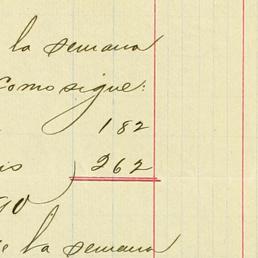 la semana
como sigue:
182
262
la semana